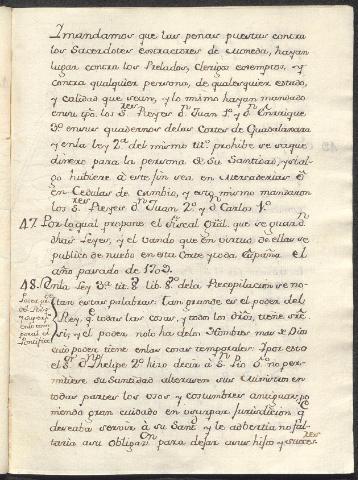 Y mandamos que las penas puestas contra
los Sacerdotes extractores de Moneda, hayan
lugar contra los Prelados, Clerigos exemptos, y
contra qualquier persona, de qualesquier estado,
y calidad que sean, y lo mismo hayan mandado
los S.res Reyes D.n Juan 1.º y D.n Enrique
3.º en sus quadernos de las Cortes de Guadalaxara
y en la ley 2.ª del mismo tit.º prohibe se saque
dinero para la persona de Su Santidad, y si al-
go hubiere a este fin sea en Mercaderias ó
en Cedulas de Cambio, y esto mismo mandaron
los S.res Reyes D.n Juan 2.º y D.n Carlos 1.º
47. Por lo qual propone el Fiscal Gral. que se guard.n
dhas Leyes, y el vando que en virtud de ellas se
publico de nuebo en esta Corte y toda España el
año pasado de 1709.
48. En la Ley 3.ª tit. 8. lib. 8.º de la Recopilacion se no-
tan estas palabras: Tan grande es el poder del
Rey, q.e todas las cosas, y todos los dros, tiene so
si; y el poder no lo ha de los Hombres mas de Dios
cuio poder tiene en las cosas temporales: Por esto
el S.r D.n Phelipe 2.º hizo decir á S.n Pio 5.º no per-
mitiese su Santidad alterasen sus Ministros en
todas partes los usos y costumbres antiguas, po
niendo gran cuidado en usurpar jurisdicion, q.e
deseaba servir á su Sant.d y le advertia no fal-
taria a su obligac.on para dejar a sus hijos y succes.res